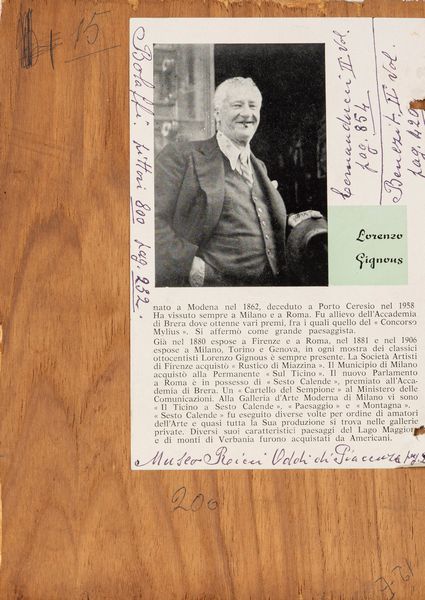 # 15
Bolaffi: pittori 800 pag. 232.
Comanducci II Vol.
pag. 854
Benezit II Vol.
Lorenzo
Gignous
nato a Modena nel 1862, deceduto a Porto Ceresio nel 1958
Ha vissuto sempre a Milano e a Roma. Fu allievo dell'Accademia
di Brera dove ottenne vari premi, fra i quali quello del « Concorso
Mylius ». Si affermò come grande paesaggista.
Già nel 1880 espose a Firenze e a Roma, nel 1881 e nel 1906
espose a Milano, Torino e Genova, in ogni mostra dei classici
ottocentisti Lorenzo Gignous è sempre presente. La Società Artisti
di Firenze acquistò « Rustico di Miazzina ». Il Municipio di Milano
acquistò alla Permanente « Sul Ticino ». Il nuovo Parlamento
a Roma è in possesso di « Sesto Calende », premiato all'Acca-
demia di Brera. Un « Cartello del Sempione » al Ministero delle
Comunicazioni. Alla Galleria d'Arte Moderna di Milano vi sono
« Il Ticino a Sesto Calende », « Paesaggio » e « Montagna ».
« Sesto Calende » fu eseguito diverse volte per ordine di amatori
dell'Arte e quasi tutta la Sua produzione si trova nelle gallerie
private. Diversi suoi caratteristici paesaggi del Lago Maggiore
e di monti di Verbania furono acquistati da Americani.
Museo Ricci Oddi di Piacenza
200